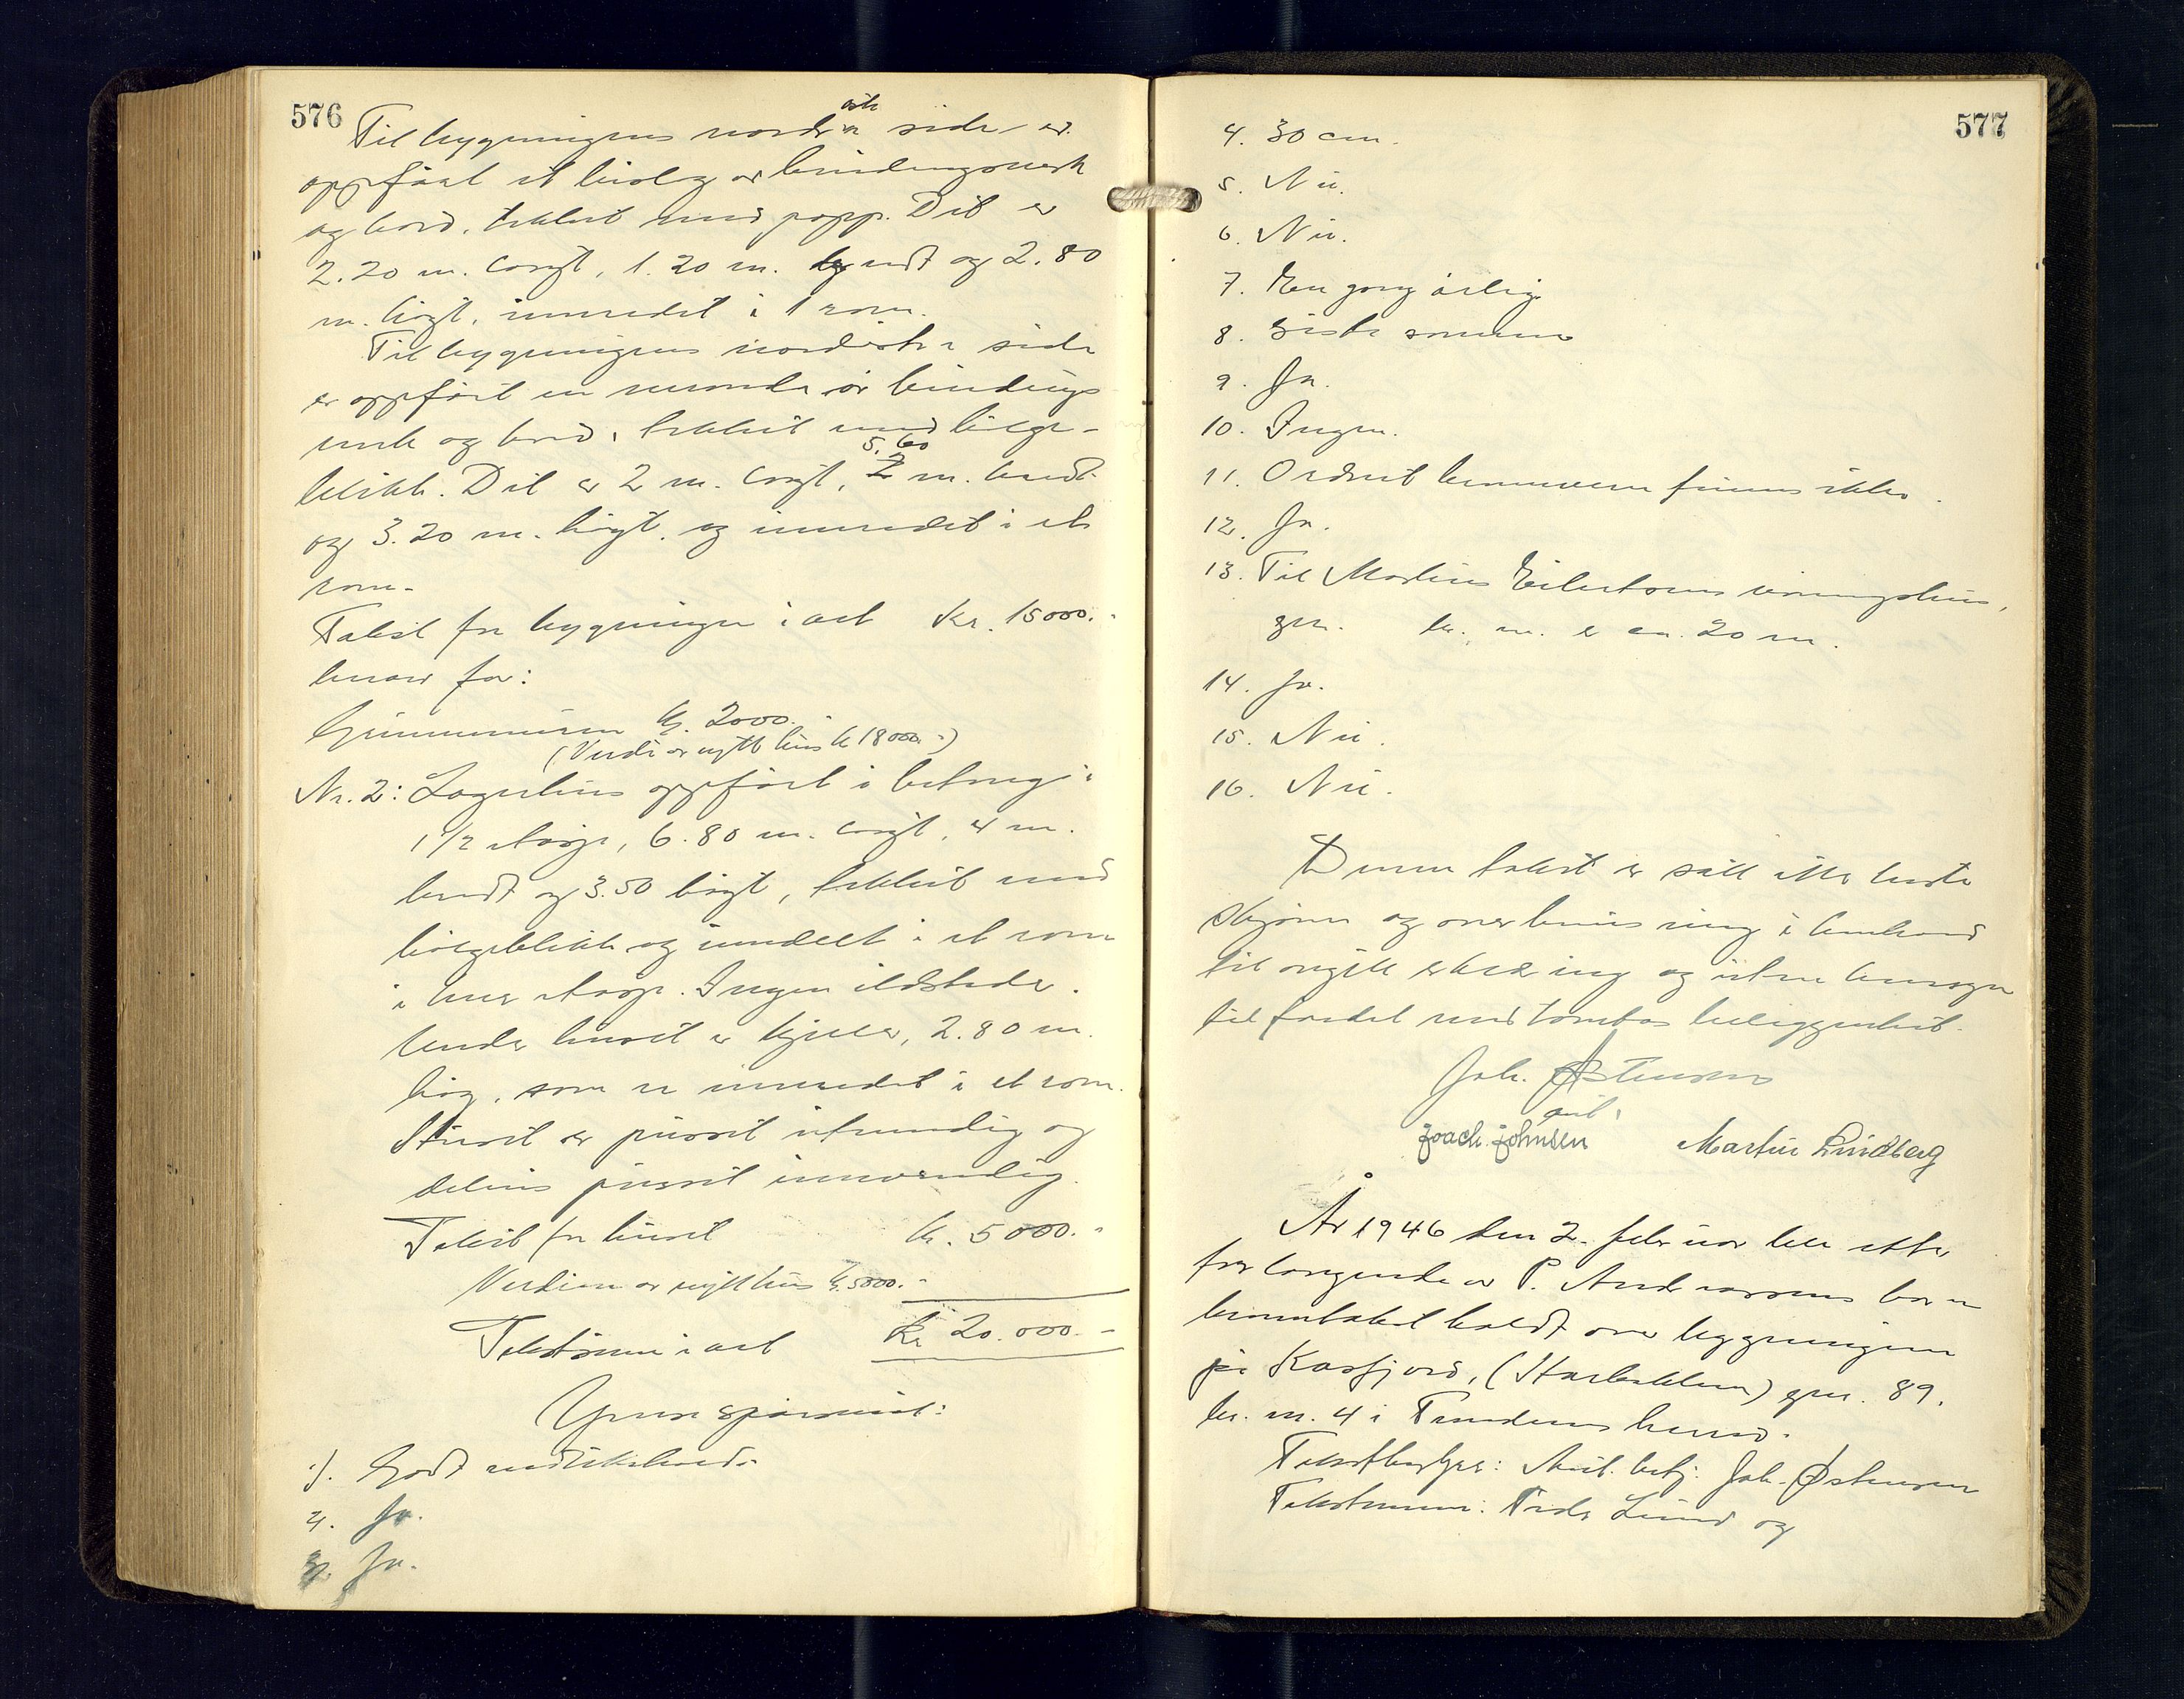 576
Til bygningens nordøstre side er
oppført et bislag av bindingsverk
og bord, tekket med papp. Det er
2.20 m. langt, 1.20 m. bredt og 2.80
m. høgt, innredet i 1 rom.
Til bygningens nordøstre side
er oppført en veranda av bindings
verk og bord, tekket med bølge-
blikk. Det er 2 m. langt, 5.60 m. bredt
og 3.20 m. høgt, og innredet i et
rom.
Takst for bygningen i alt Kr. 15000.-
herav for:
Grunnmuren kr. 2000.-
(Verdi av nytt hus kr 18000.-)
Nr. 2: Lagerhus oppført i betong i
1 1/2 etasje, 6.80 m. langt, 4 m.
bredt og 3.50 høgt, tekket med
bølgeblikk og inndelt i et rom
i hver etasje. Ingen ildsteder.
Under huset er kjeller, 2.80 m.
høg, som er innredet i et rom.
Huset er pusset utvendig og
delvis pusset innvendig.
Takst for huset kr. 5000.-
Verdien av nytt hus kr. 5000.-
Takstsum i alt Kr 20.000.-
Yxxx spørsmål:
1. Godt vedlikehold.
2. Ja.
3. Ja.
577
4. 30 cm.
5. Nei.
6. Nei.
7. En gang årlig
8. Siste sommer
9. Ja.
10. Ingen.
11. Ordnet brannvern finnes ikke.
12. Ja.
13. Til Martin Eilertsens våningshus,
gnr. br. nr. er ca. 20 m.
14. Ja.
15. Nei.
16. Nei.
Denne takst er satt etter beste
skjønn og overbevisning i henhold
til avgitt erklæring og uten hensyn
til fordel ved tomtas beliggenhet.
Joh. Østensen
Joach. Johnsen Martin Lindberg
År 1946 den 2. februar ble etter
forlangende av P. Andreassens bo
branntakst holdt over bygningen
på Kasfjord, (Starbakken) gnr. 89,
br. nr. 4 i Trondenes herred.
Takstbestyrer: Aut. betj. Joh. Østensen
Takstmenn: Peder Lund og